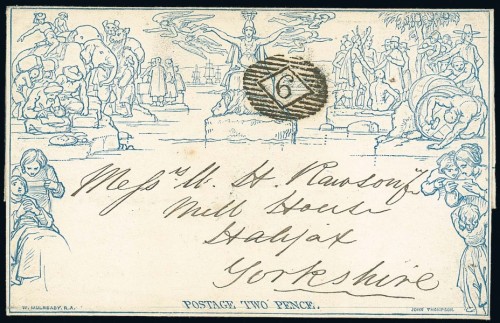 6
Messrs W. H. Rawson
Mill House
Halifax
Yorkshire
POSTAGE TWO PENCE.
W. MULREADY, R.A.
JOHN THOMPSON